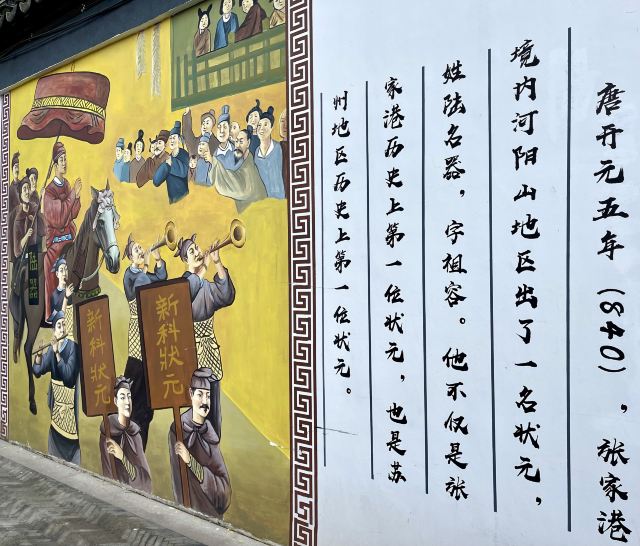 唐开元五年（840），张家港
境内河阳山地区出了一名状元，
姓陆名器，字祖容。他不仅是张
家港历史上第一位状元，也是苏
州地区历史上第一位状元。
新科状元
新科状元